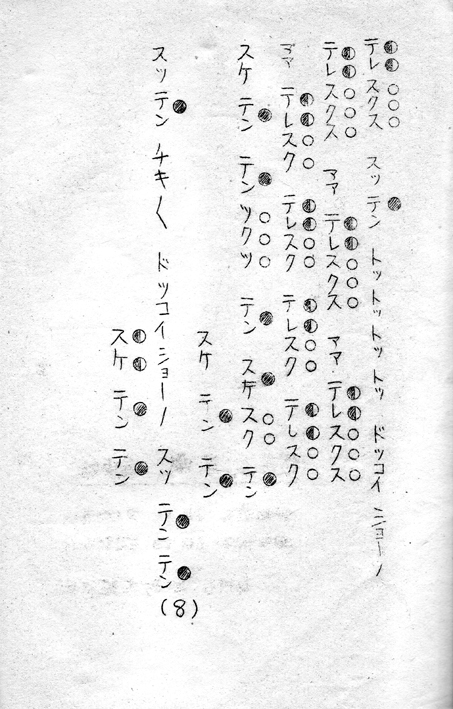 テレスクス スッテン トットットットッ ドッコイショーノ
テレスクス ママ テレスクス ママ テレスクス
ママ テレスク テレスク テレスク テレスク
スケ テン テン ツクツ テン スケスク テン
スケ テン テン
スッテン チキ〱 ドッコイショーノ スッ テン テン (8)
スケ テン テン